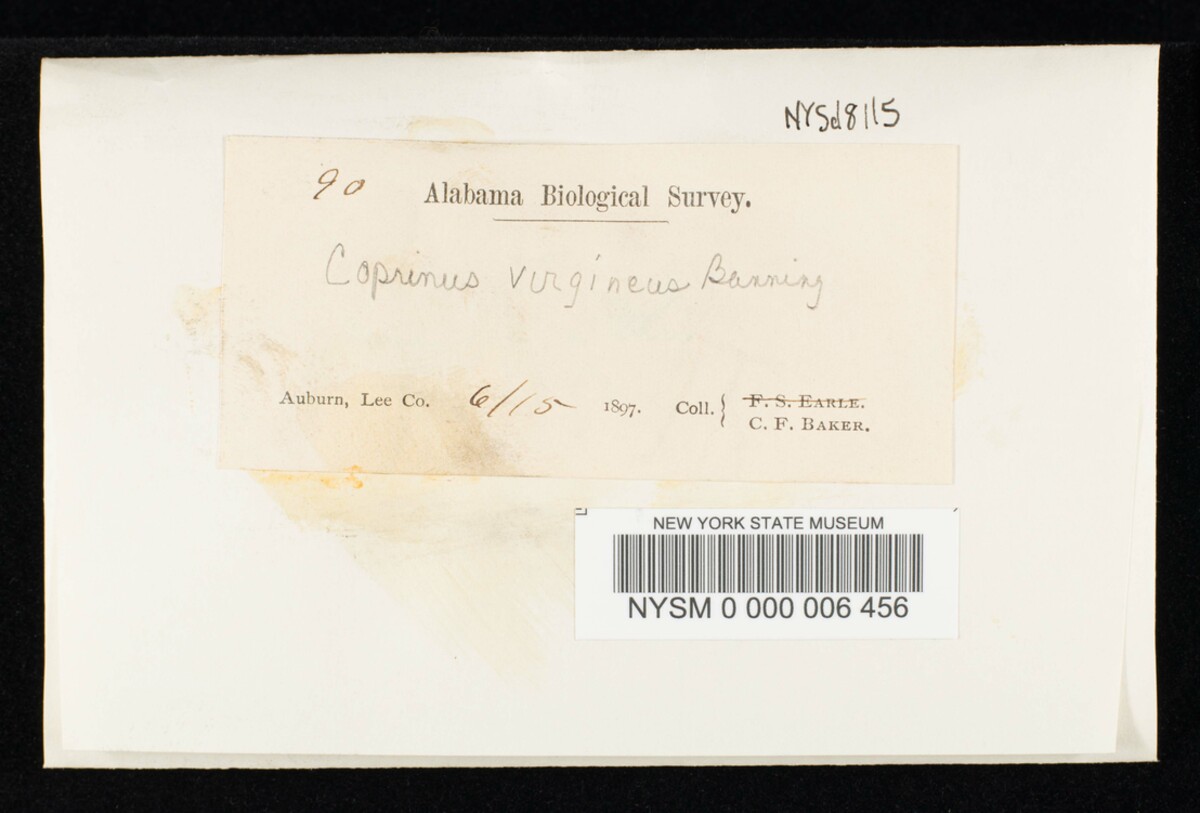 NYSd8115
90 Alabama Biological Survey.
Coprinus virgineus Banning
Auburn, Lee Co. 6/15 1897. Coll. { F. S. Earle.
C. F. Baker.
NEW YORK STATE MUSEUM
NYSM 0 000 006 456